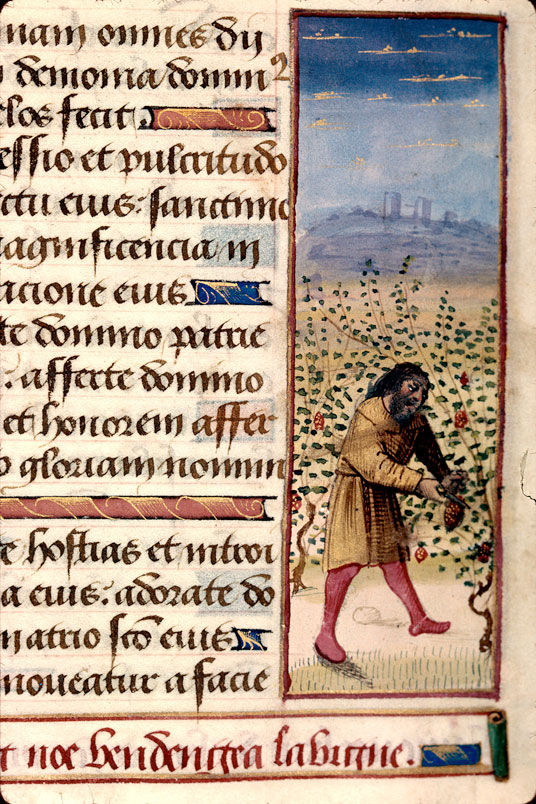 niam omnes dii
demonia domin
elos fecit.
essio et pulcritudo
ectu eius: sanctimo
agnificencia in
acione eius
te domino patrie
. afferte domino
et honorem affer
o gloriam nomini
e hostias et introi
a eius. adorate do
n atrio sco eius
moueatur a facie
t noe vendengea la vigne.